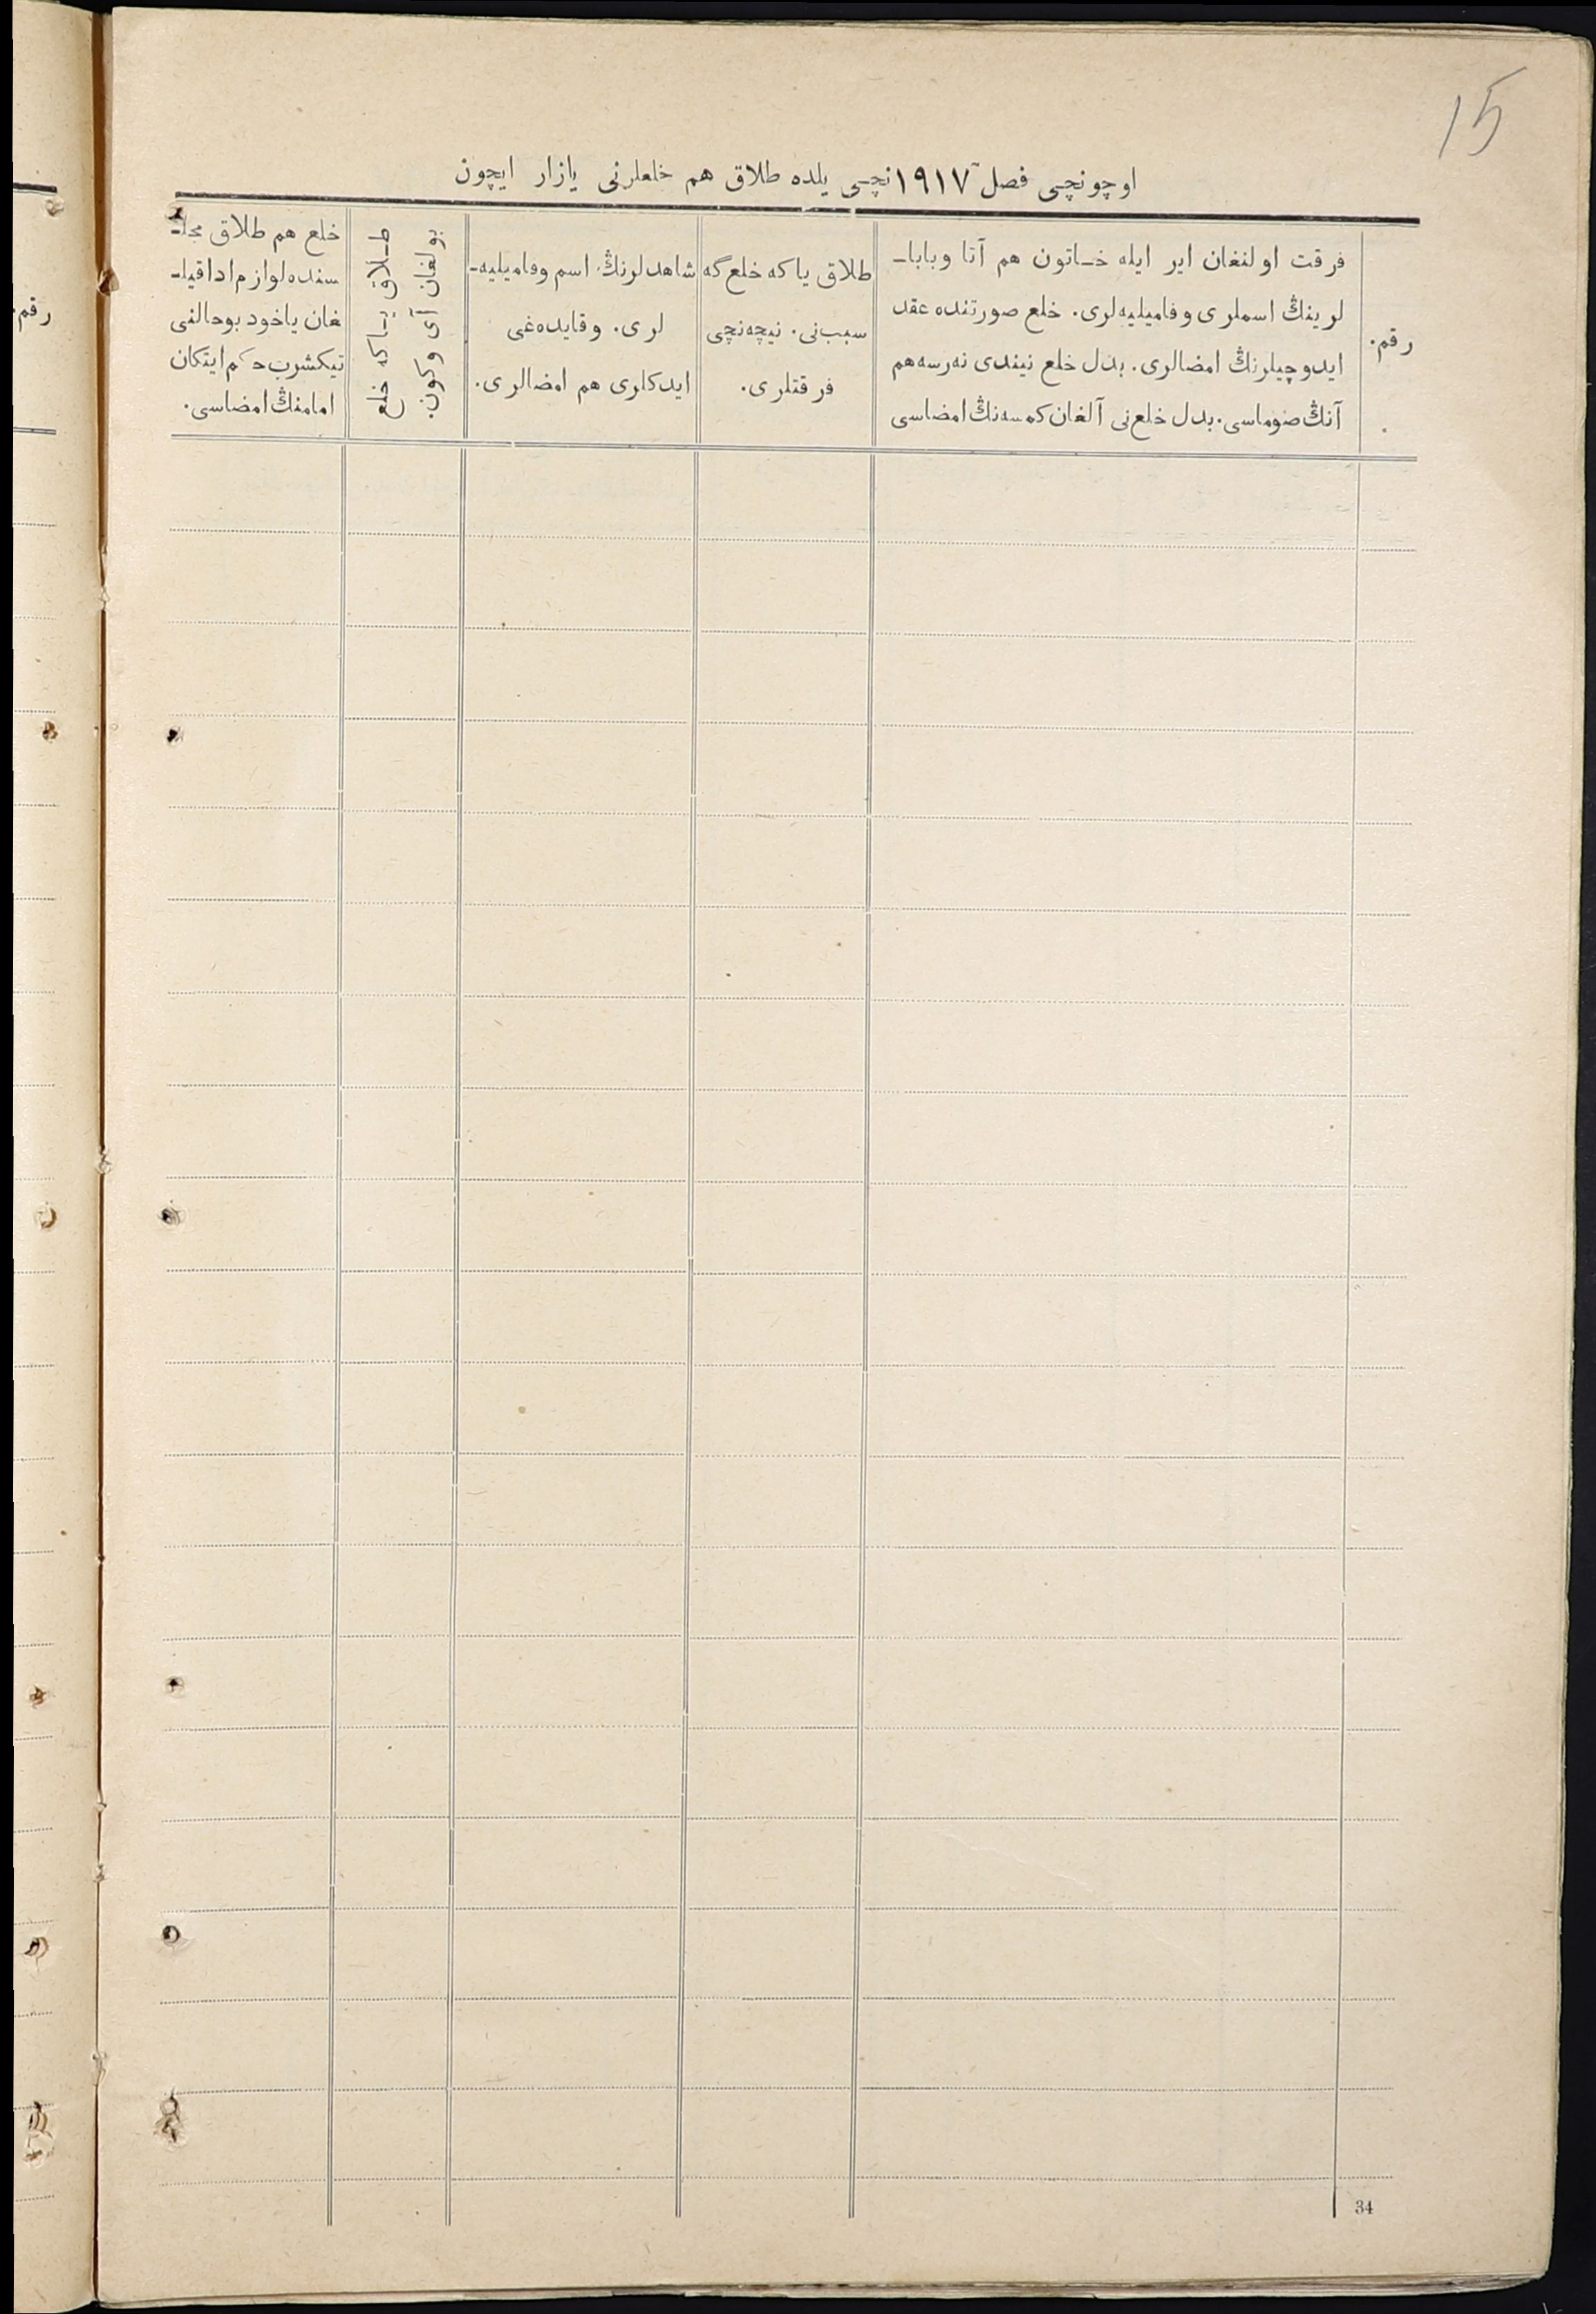 15
اوچونچی فصل ١٩١٧ نچی یلده طلاق هم خلعلرنی یازار ایچون
رقم.
فرقت اولنغان ایر ایله خـاتون هم آتا وبابا–
لرینڭ اسملری وفامیلیه‌لری. خلع صورتنده عقد
ایدوچیلرنڭ امضالری. بدل خلع نیندی نه‌رسه هم
آنڭ صوماسی. بدل خلع‌نی آلغان کمسه‌نڭ امضاسی
طلاق یاکه خلع گه
سبب‌نی. نیچه‌نچی
فرقتلری.
شاهدلرنڭ اسم وفامیلیه–
لری. وقایده‌غی
ایدکلری هم امضالری.
طـلاق یـاکه خلع
بولغان آی وکون.
خلع هم طلاق مجلـ
سنده لوازم ادا قیلـ
غان یاخود بوحالنی
تیکشرب حکم ایتکان
امامنڭ امضاسی.
34
رقم.